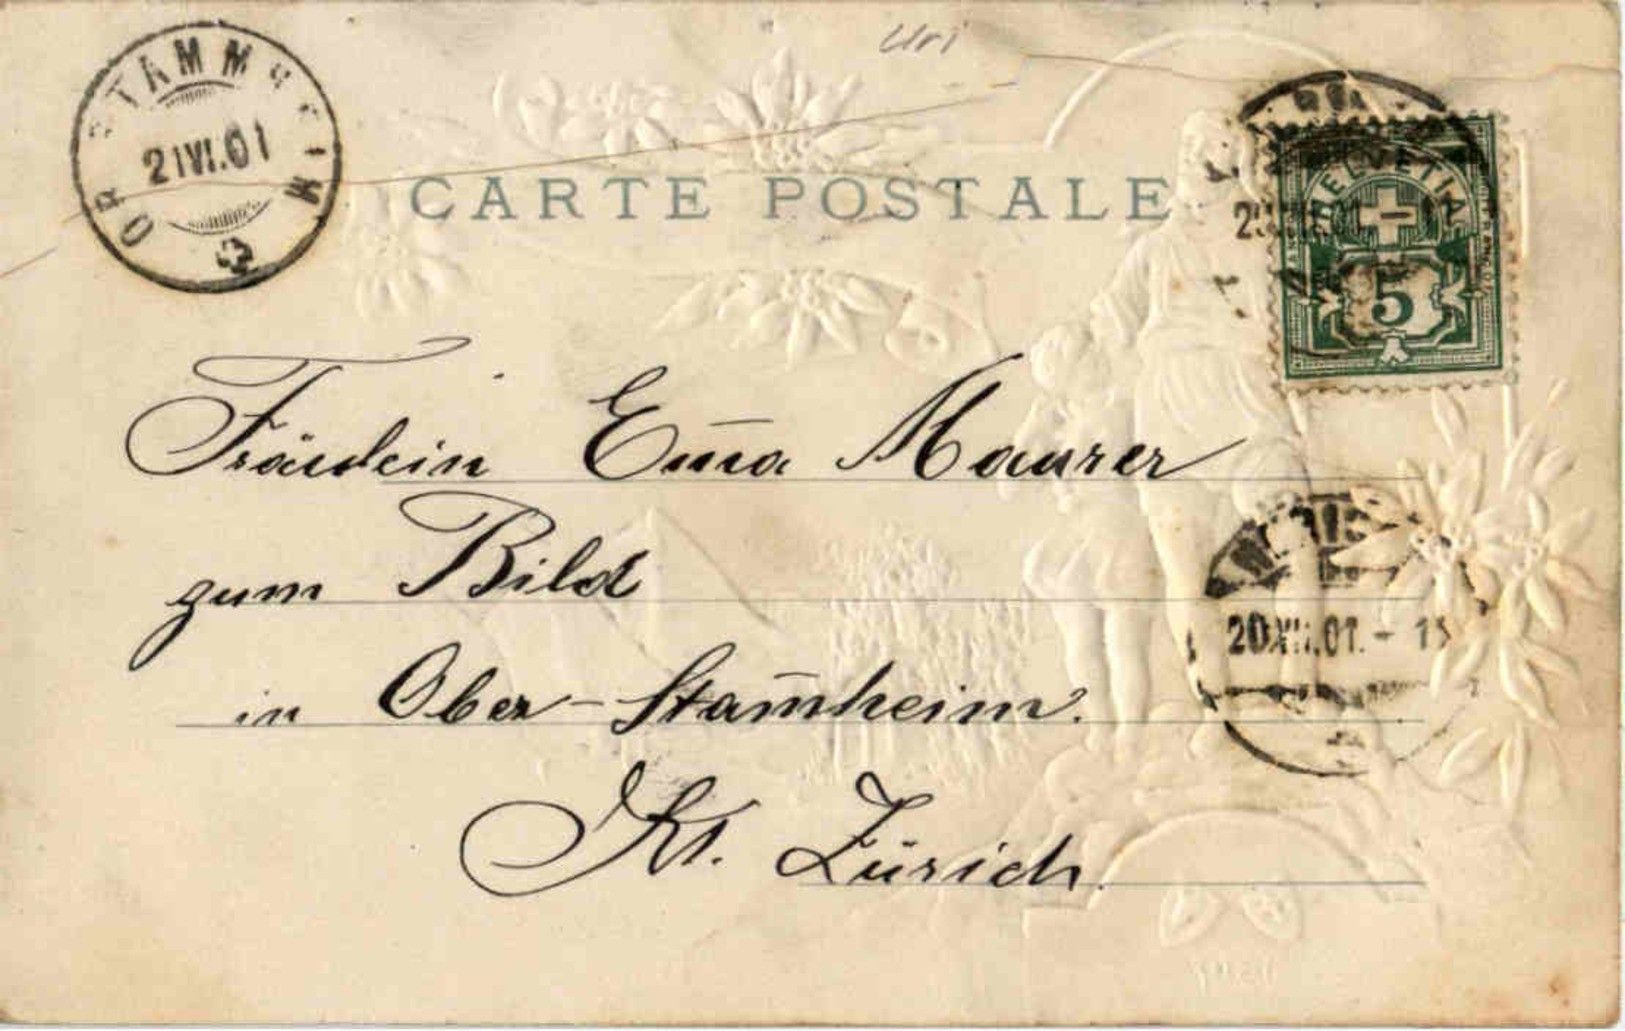 Uri
OB. STAMMHEIM
21VI.01
CARTE POSTALE
HELVETIA
5
Fräulein Em̄a Maurer
zum Bild
in Ober-Stam̄heim.
Kt. Zürich.
20.XII.01.-